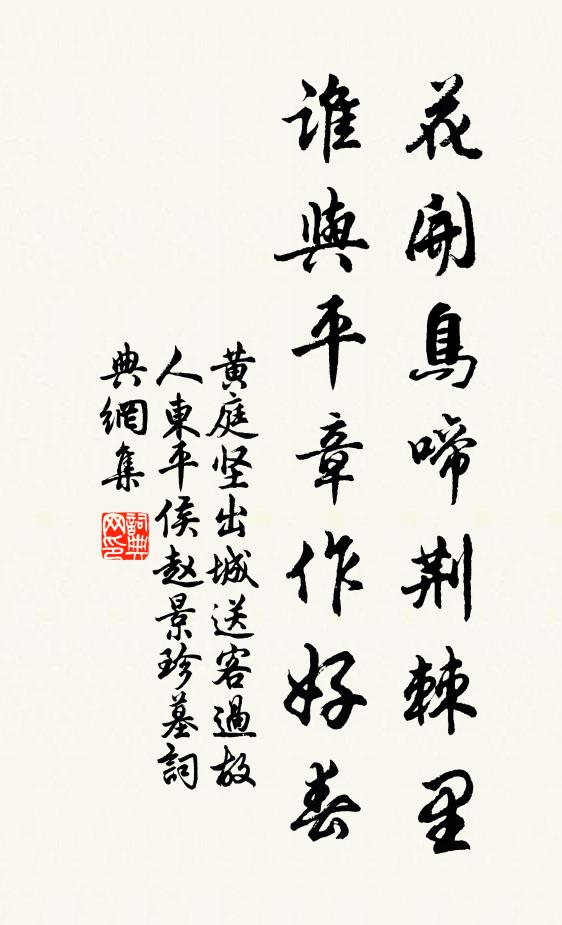 花開鳥啼荆棘里
誰與平章作好春
黄庭坚出城送客過故
人東平侯赵景珍墓詞
典網集
詞典网印